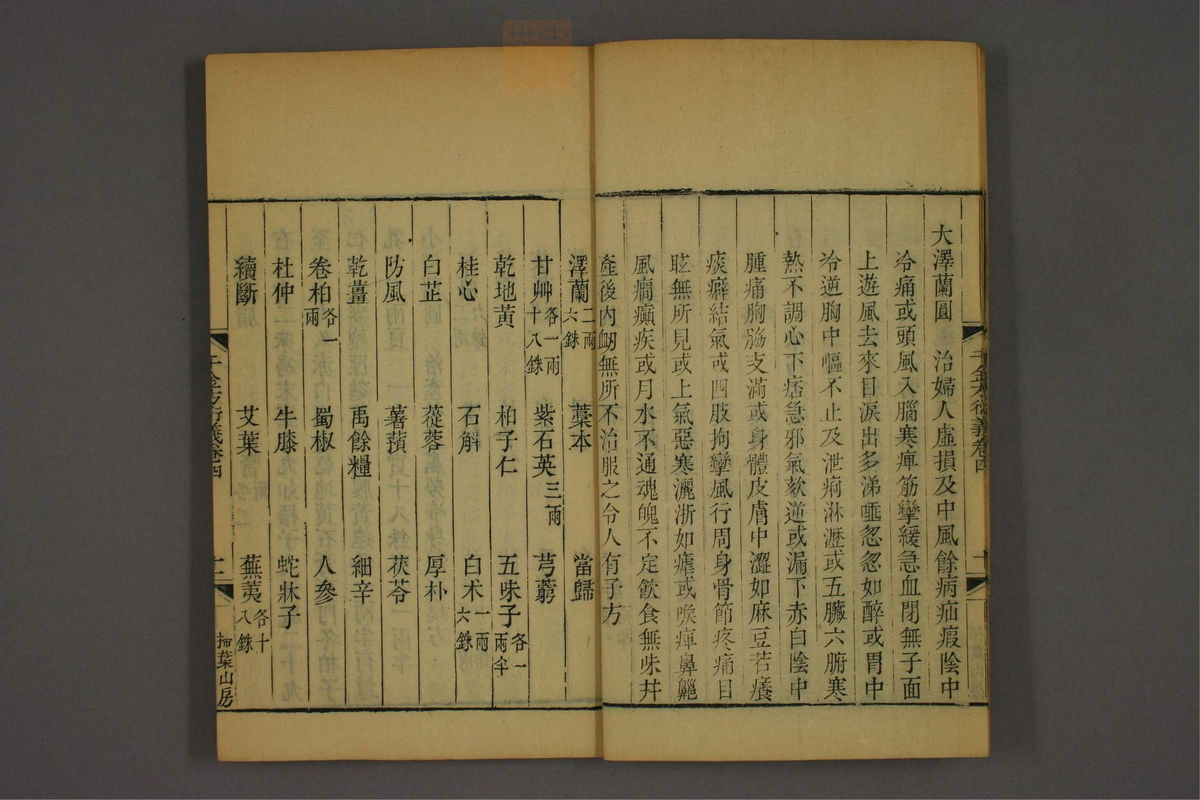 大澤蘭圓　治婦人虛損及中風餘病疝瘕陰中
冷痛或頭風入腦寒痺筋攣緩急血閉無子面
上遊風去來目淚出多涕唾忽忽如醉或胃中
冷逆胸中嘔不止及泄痢淋瀝或五臟六腑寒
熱不調心下痞急邪氣欬逆或漏下赤白陰中
腫痛胸脇支滿或身體皮膚中澀如麻豆若癢
痰癖結氣或四肢拘攣風行周身骨節疼痛目
眩無所見或上氣惡寒灑淅如瘧或喉痺鼻齆
風癎癲疾或月水不通魂魄不定飲食無味幷
產後內衂無所不治服之令人有子方
澤蘭二兩六銖　藁本　當歸
甘艸各一兩十八銖　紫石英三兩　芎藭
乾地黃　柏子仁　五味子各一兩半
桂心　石斛　白朮一兩六銖
白芷　蓯蓉　厚朴
防風　薯蕷　茯苓
乾薑　禹餘糧　細辛
卷柏各一兩　蜀椒　人參
杜仲　牛膝　蛇牀子
續斷　艾葉　蕪荑各十八銖
千金方衍義卷四
掃葉山房